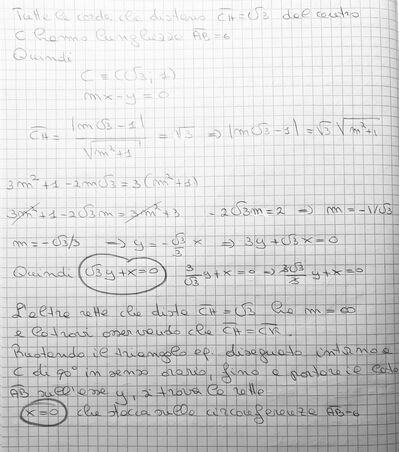 Tutte le corde che distano C̅H̅=√3 dal centro
C hanno lunghezza A̅B̅=6
Quindi
C ≡ C(√3, 1)
mx-y=0
C̅H̅ = |m√3-1| / √(m²+1) = √3 ⇒ |m√3-1| = √3 √(m²+1)
3m²+1-2m√3=3(m²+1)
3m²+1-2√3m=3m²+3 -2√3m=2 ⇒ m=-1/√3
m=-√3/3 → y=-√3/3 x ⇒ 3y+√3x=0
Quindi √3y+x=0 3/√3 y+x=0 ⇒ 3√3/3 y+x=0
L'altra retta che dista C̅H̅=√3 ha m=∞
e la trovi osservando che C̅H̅=C̅K̅.
Ruotando il triangolo eq. disegnato intorno a
C di 90° in senso orario, fino a portare il lato
A̅B̅ sull'asse y, si trova la retta
x=0 che stacca sulla circonferenza A̅B̅=6